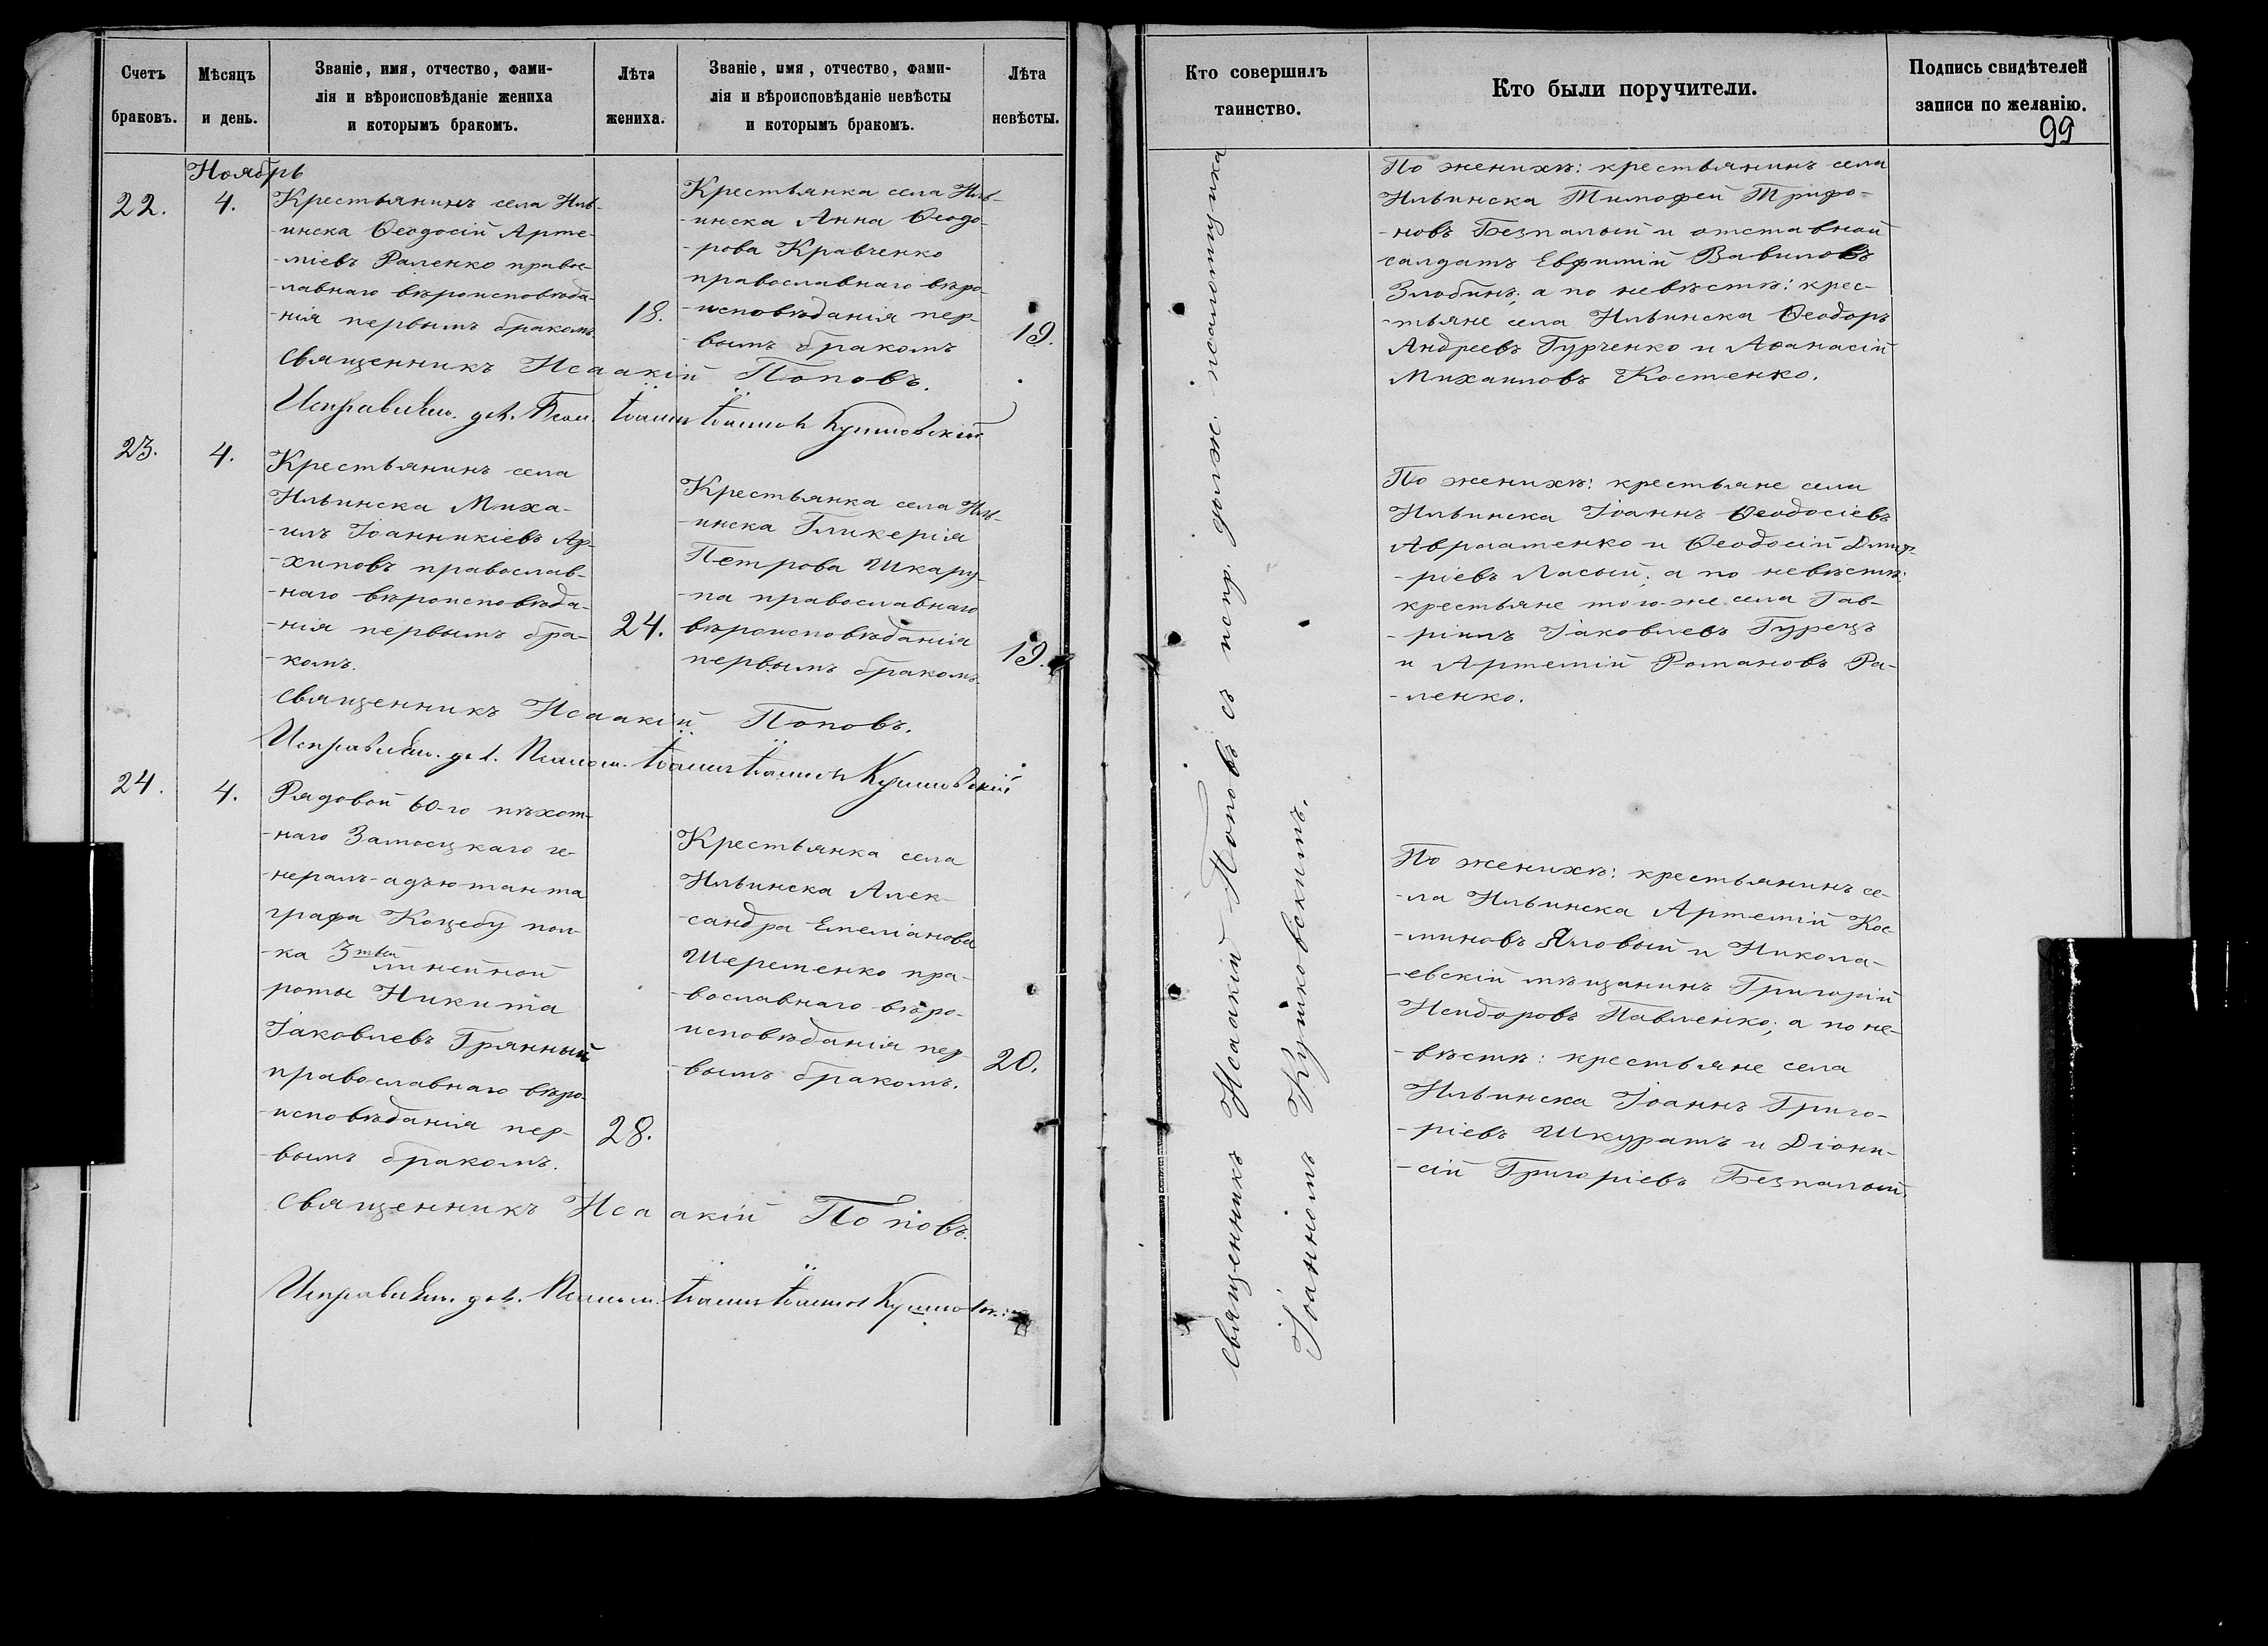 Счетъ
браковъ.
Мѣсяцъ
и день.
Званіе, имя, отчество, фами-
лія и вѣроисповѣданіе жениха
и которымъ бракомъ.
Лѣта
жениха.
Званіе, имя, отчество, фами-
лія и вѣроисповѣданіе невѣсты
и которымъ бракомъ.
Лѣта
невѣсты.
Ноябрь
22.
4.
Крестьянинъ села Иль-
-инска Ѳеодосій Арте-
-міевъ Раленко правос-
-лавнаго вѣроисповѣда-
-нія первымъ бракомъ.
18.
Крестьянка села Иль-
-инска Анна Ѳеодо-
-рова Кравченко
православнаго вѣро-
-исповѣданія пер-
-вымъ бракомъ
19.
Священникъ Исаакій Поповъ.
23.
4.
Крестьянинъ села
Ильинска Миха-
-илъ Іоанникіевъ Ар-
-хиповъ православ-
-наго вѣроисповѣда-
-нія первымъ бра-
-комъ.
24.
Крестьянка села Иль-
-инска Гликерія
Петрова Шкару-
-па православнаго
вѣроисповѣданія
первымъ бракомъ.
19.
Священникъ Исаакій Поповъ.
24.
4.
Рядовой 60-го пѣхот-
-наго Замосцкаго ге-
-нералъ-адъютанта
графа Коцебу пол-
-ка 3тьей линейной
роты Никита
Іаковлевъ Грянный
православнаго вѣро-
-исповѣданія пер-
-вымъ бракомъ.
28.
Крестьянка села
Ильинска Алек-
-сандра Емеліанова
Шеременко пра-
-вославнаго вѣро-
исповѣданія пер-
-вымъ бракомъ.
20.
Священникъ Исаакій Поповъ.
Кто совершилъ
таинство.
Кто были поручители.
Подпись свидѣтелей
записи по желанію.
99
Священникъ Исаакій Поповъ съ испр. долж. псаломщика
Іоанномъ Кушковскимъ.
По женихѣ: крестьянинъ села
Ильинска Тимофей Трифо-
-новъ Безпалый и отставной
салдатъ Евфимій Вавиловъ
Злобинъ; а по невѣстѣ: крес-
-тьяне села Ильинска Ѳеодоръ
Андреевъ Гурченко и Аѳанасій
Михаиловъ Костенко.
По женихѣ: крестьяне села
Ильинска Іоаннъ Ѳеодосіевъ
Авраменко и Ѳеодосій Димит-
-ріевъ Ласый; а по невѣстѣ:
крестьяне того-же села Гав-
-ріилъ Іаковлевъ Гурецъ
и Артемій Романовъ Ра-
-ленко.
По женихѣ: крестьянинъ се-
-ла Ильинска Артемій Кос-
-миновъ Яловый и Никола-
-евскій мѣщанинъ Григорій
Исидоровъ Павленко; а по не-
-вѣстѣ: крестьяне села
Ильинска Іоаннъ Григо-
-ріевъ Шкуратъ и Діони-
-сій Григоріевъ Безпалый.